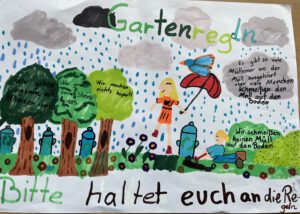 Gartenregln
Es gibt so viele
Mülleimer wo der
Müll hingehört
aber viele Menschen
schmeißen den
Müll auf den
Boden
Wir machen
nichts kaputt
Wir schmeißen
keinen Müll
auf den Boden
Bitte haltet euch an die Re
geln